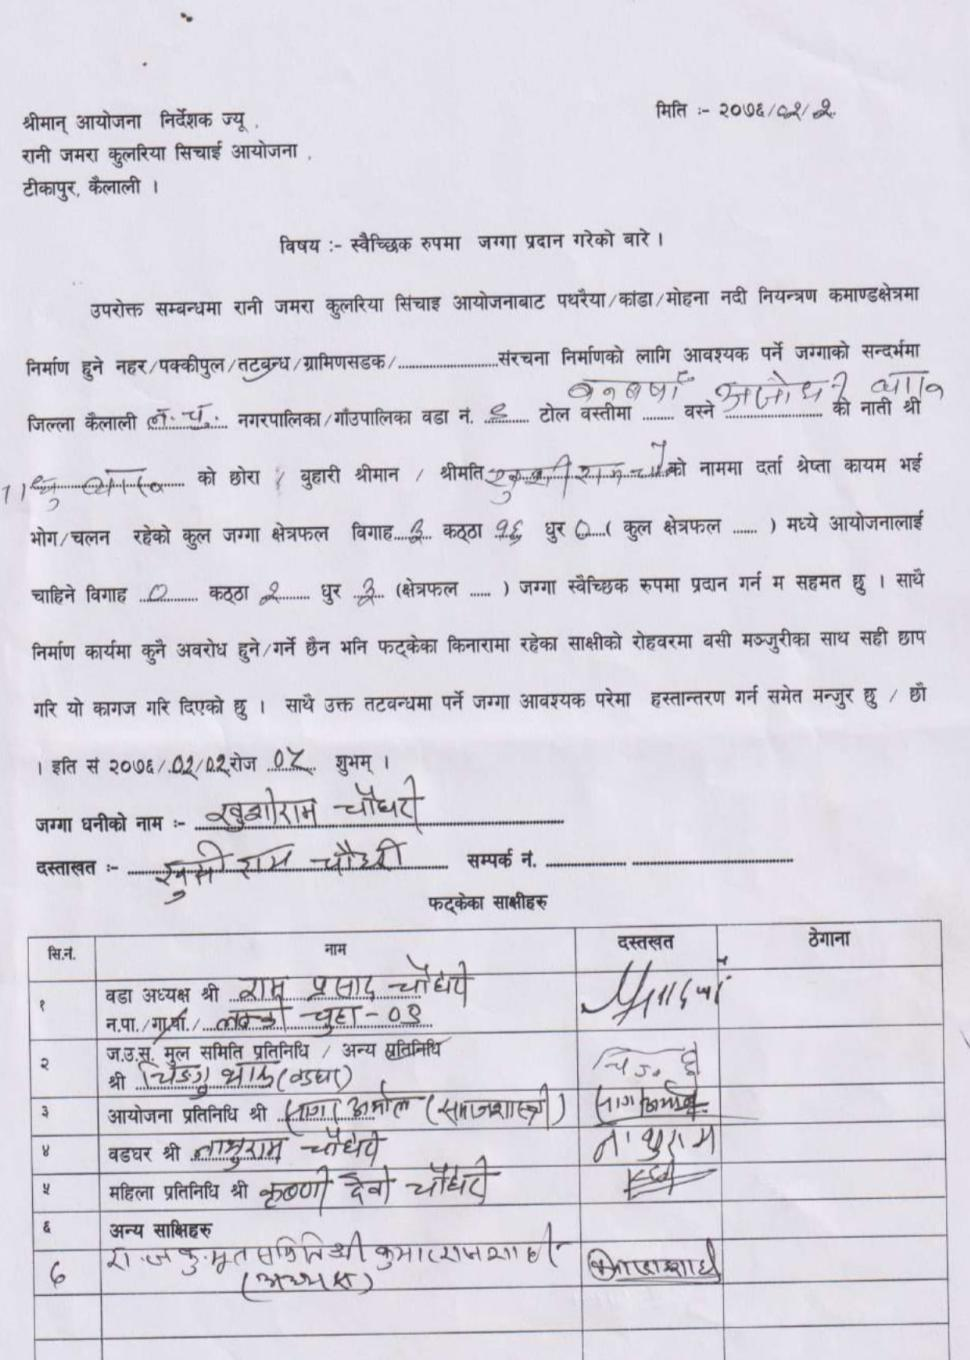 मिति :- २०७६/०२/२
श्रीमान् आयोजना निर्देशक ज्यू ,
रानी जमरा कुलरिया सिचाई आयोजना ,
टीकापुर, कैलाली ।
विषय :- स्वैच्छिक रुपमा जग्गा प्रदान गरेको बारे ।
उपरोक्त सम्बन्धमा रानी जमरा कुलरिया सिंचाइ आयोजनाबाट पथरैया/कांडा/मोहना नदी नियन्त्रण कमाण्डक्षेत्रमा
निर्माण हुने नहर/पक्कीपुल/तटबन्ध/ग्रामिणसडक/.....................संरचना निर्माणको लागि आवश्यक पर्ने जग्गाको सन्दर्भमा
जिल्ला कैलाली ल.चु. नगरपालिका/गाँउपालिका वडा नं. टोल वस्तीमा ....... वस्ने को नाती श्री
को छोरा / बुहारी श्रीमान / श्रीमति को नाममा दर्ता श्रेष्ता कायम भई
भोग/चलन रहेको कुल जग्गा क्षेत्रफल विगाह..३.. कठ्ठा १६ धुर ०....( कुल क्षेत्रफल ...... ) मध्ये आयोजनालाई
चाहिने विगाह ..०....... कठ्ठा २....... धुर ..३.. (क्षेत्रफल ..... ) जग्गा स्वैच्छिक रुपमा प्रदान गर्न म सहमत छु । साथै
निर्माण कार्यमा कुनै अवरोध हुने/गर्ने छैन भनि फट्केका किनारामा रहेका साक्षीको रोहवरमा बसी मञ्जुरीका साथ सही छाप
गरि यो कागज गरि दिएको छु । साथै उक्त तटबन्धमा पर्ने जग्गा आवश्यक परेमा हस्तान्तरण गर्न समेत मन्जुर छु / छौ
। इति सं २०७६/.०२/०२रोज शुभम् ।
जग्गा धनीको नाम :- खुशीराम चौधरी
दस्ताखत :- खुसी राम चौधरी सम्पर्क नं. ................ ................................
फट्केका साक्षीहरु
सि.नं. नाम दस्तखत ठेगाना
१ वडा अध्यक्ष श्री राम प्रसाद चौधरी
न.पा./गा.पा./ लम्की चुहा-०९
२ ज.उ.स. मुल समिति प्रतिनिधि / अन्य प्रतिनिधि
श्री (वडघर)
३ आयोजना प्रतिनिधि श्री (समाजशास्त्री)
४ वडघर श्री नाथुराम चौधरी नाथुराम
५ महिला प्रतिनिधि श्री कृष्णी देवी चौधरी
६ अन्य साक्षिहरु
७ रा.ज.कु.मूल समिति श्री कुमारराज शाही
(अध्यक्ष)